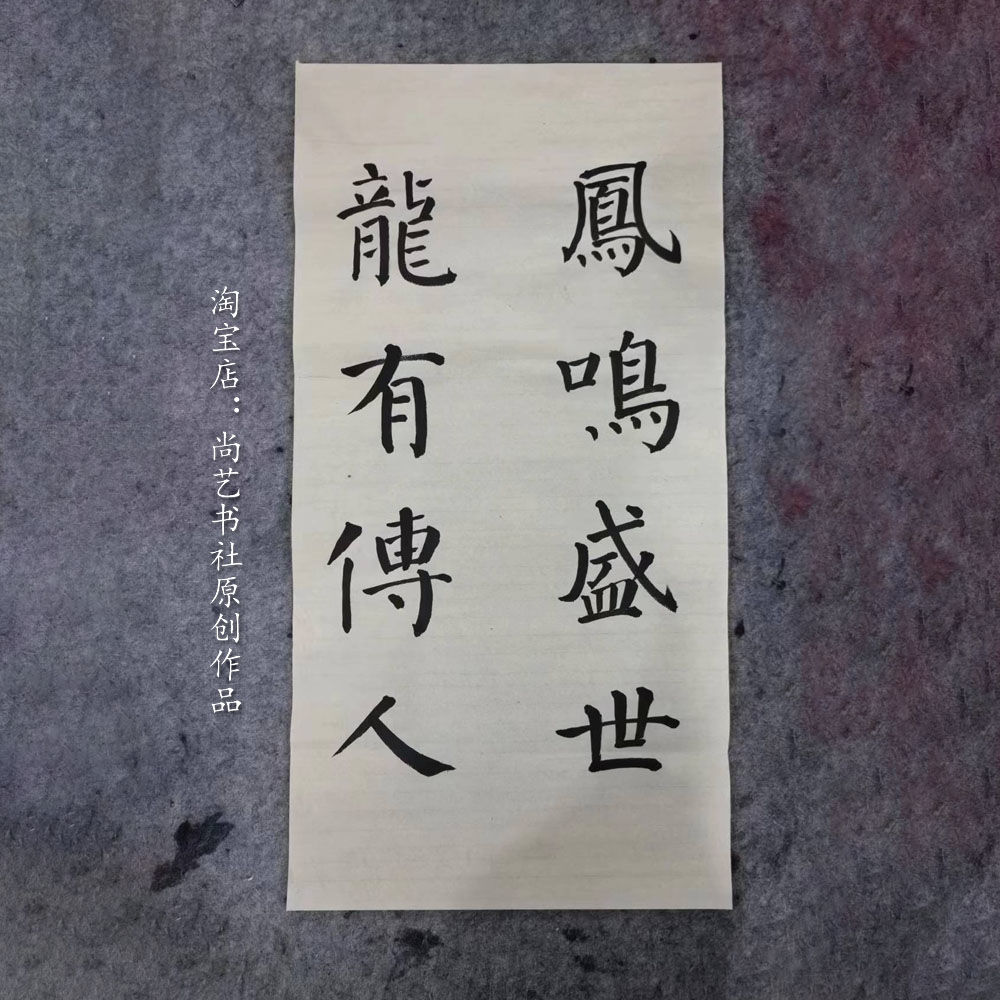 鳳鳴盛世
龍有傳人
淘宝店：尚艺书社原创作品